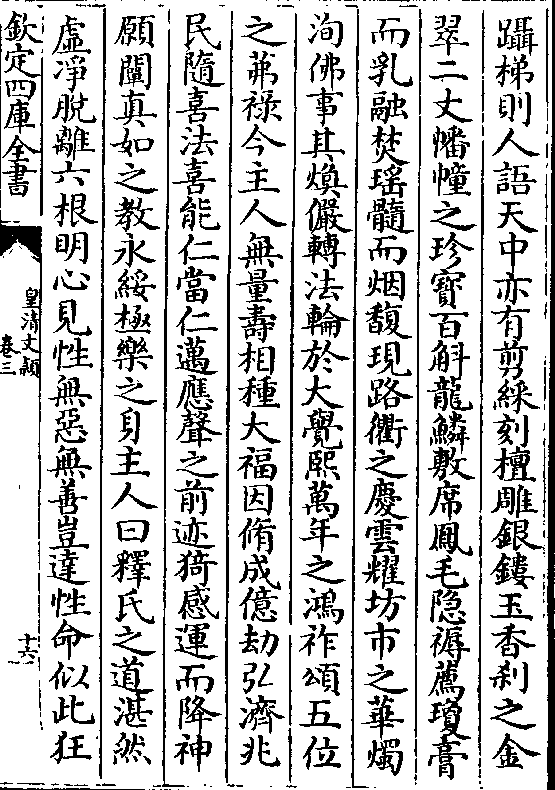 躡梯則人語天中亦有剪綵刻檀雕銀鏤玉香刹之金
翠二丈幡幢之珍寳百斛龍鱗敷席鳳毛隐褥薦瓊膏
而乳融焚瑶髓而烟馥現路衢之慶雲耀坊市之華燭
洵佛事其煥儼轉法輪於大覺熙萬年之鴻祚頌五位
之茀禄今主人無量壽相種大福因脩成億劫弘濟兆
民隨喜法喜能仁當仁邁應聲之前迹猗感運而降神
願闡真如之教永綏極樂之身主人曰釋氏之道湛然
虚凈脱離六根明心見性無惡無善豈達性命似此狂
欽定四庫全書
皇清文穎
卷三
十六